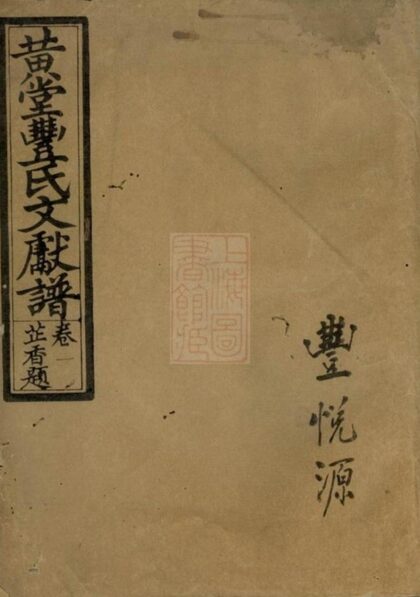 黄堂豐氏文獻譜
卷一
芷香題
豐悅源
上海圖
書館藏